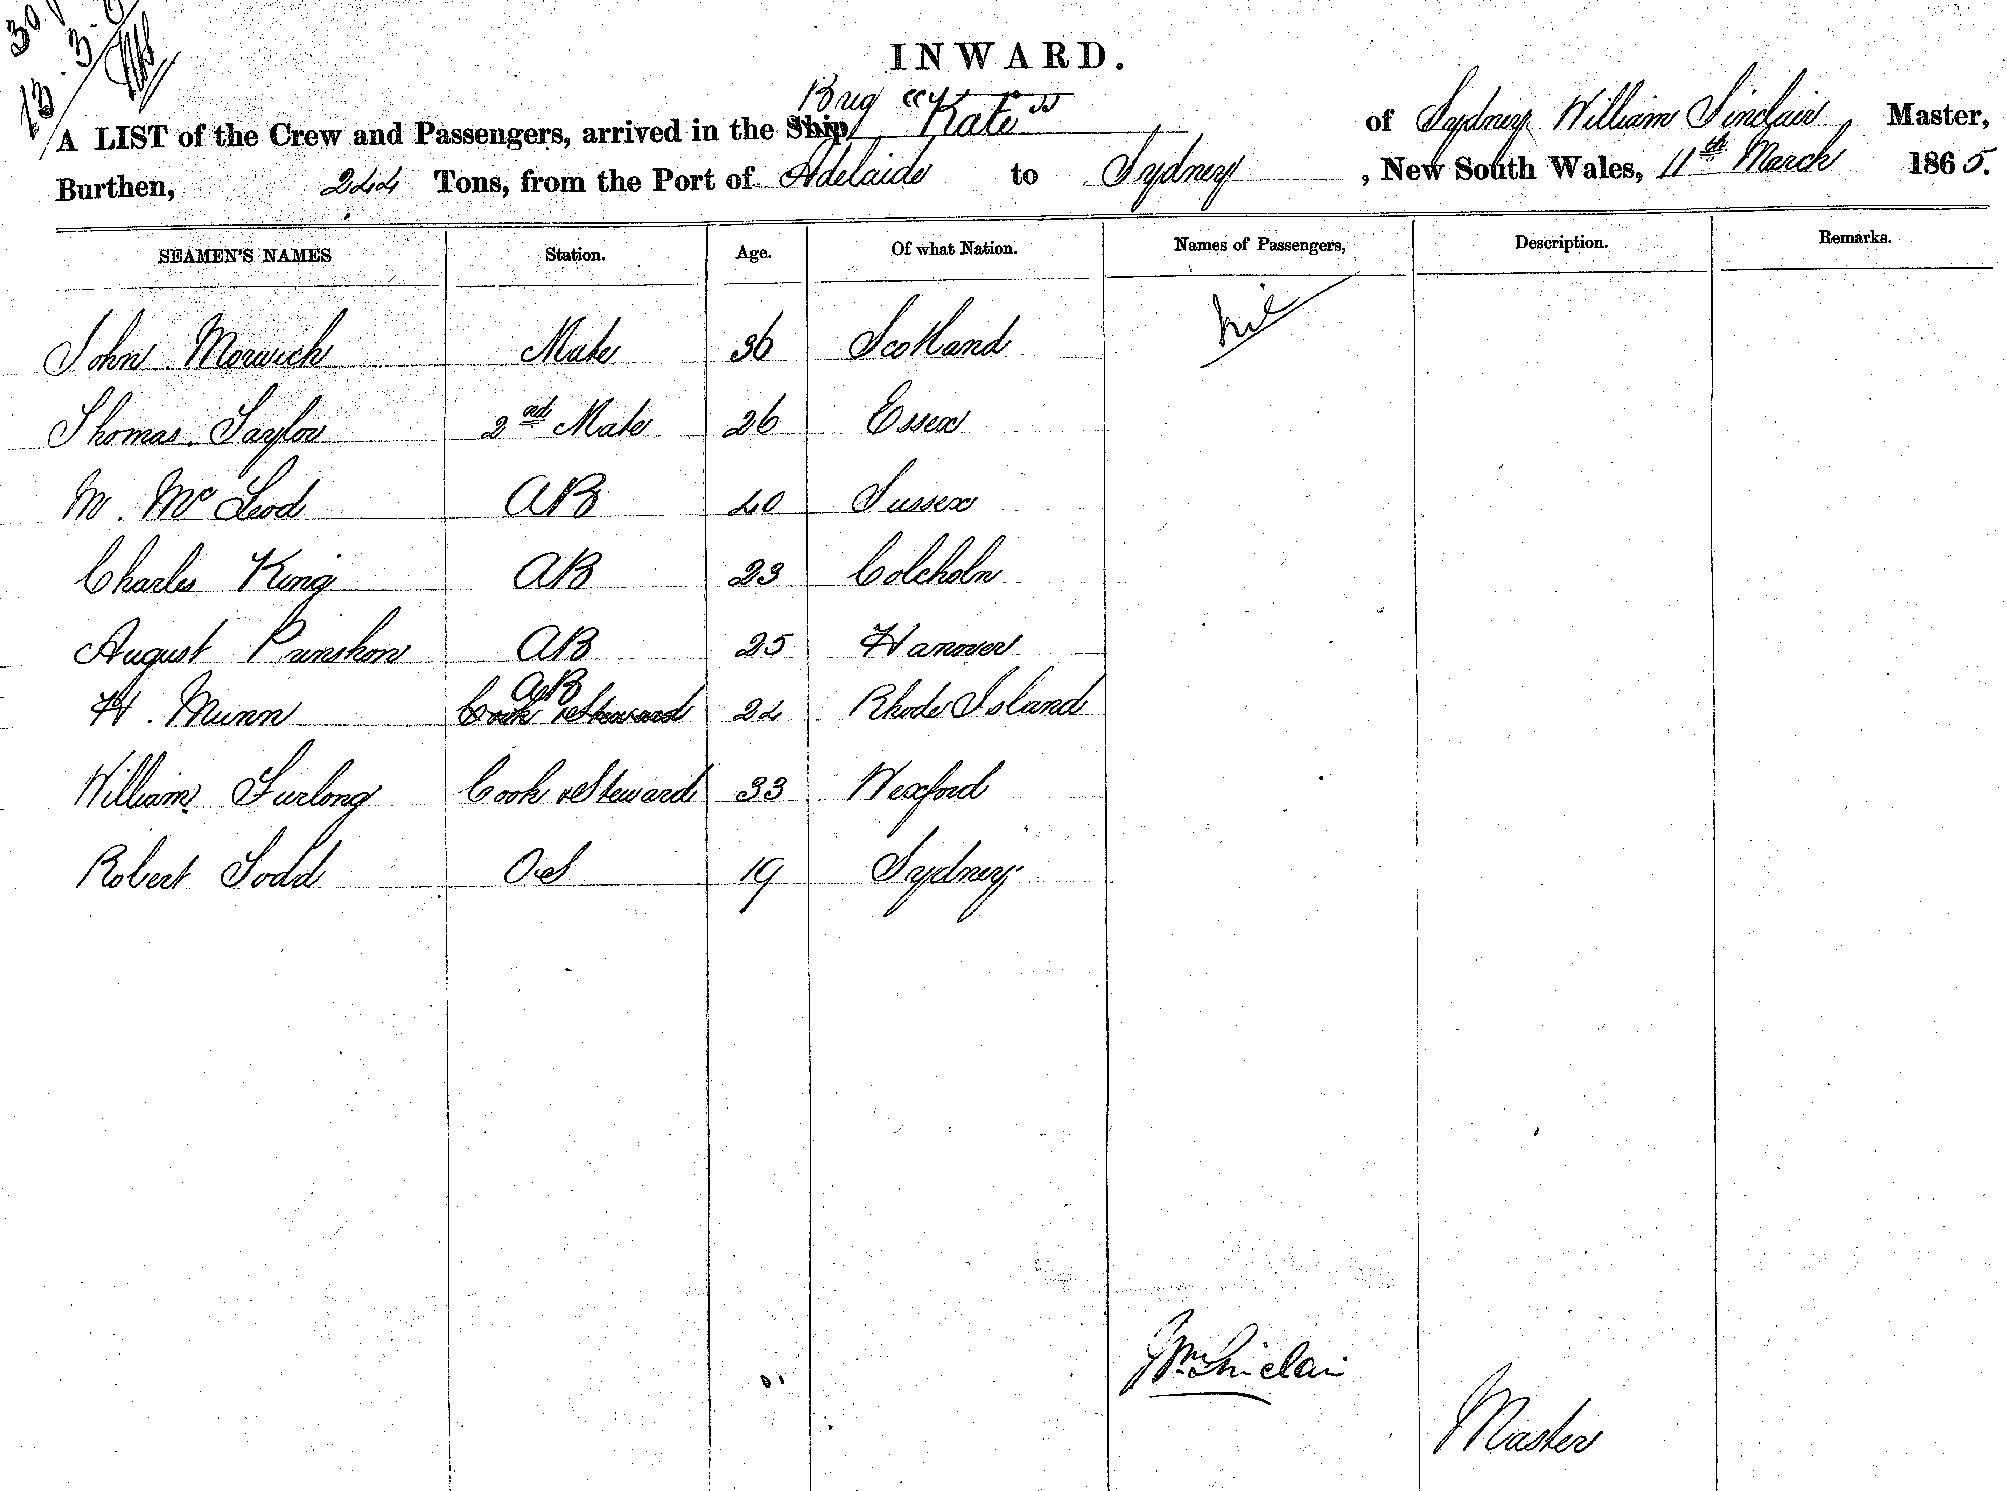 30
13.3.6
INWARD.
Brig
A LIST of the Crew and Passengers, arrived in the Ship "Kate" of Sydney William Sinclair Master,
Burthen, 244 Tons, from the Port of Adelaide to Sydney, New South Wales, 11th March 1865.
SEAMEN'S NAMES Station. Age. Of what Nation. Names of Passengers, Description. Remarks.
John Morwick Mate 36 Scotland nil
Thomas Taylor 2nd Mate 26 Essex
M. McLeod AB 40 Sussex
Charles King AB 23
August AB 25 Hanover
AB
H. Munn Cook & Steward 24 Rhode Island
William Furlong Cook & Steward 33 Wexford
Robert Todd OS 19 Sydney
Wm Sinclair
Master